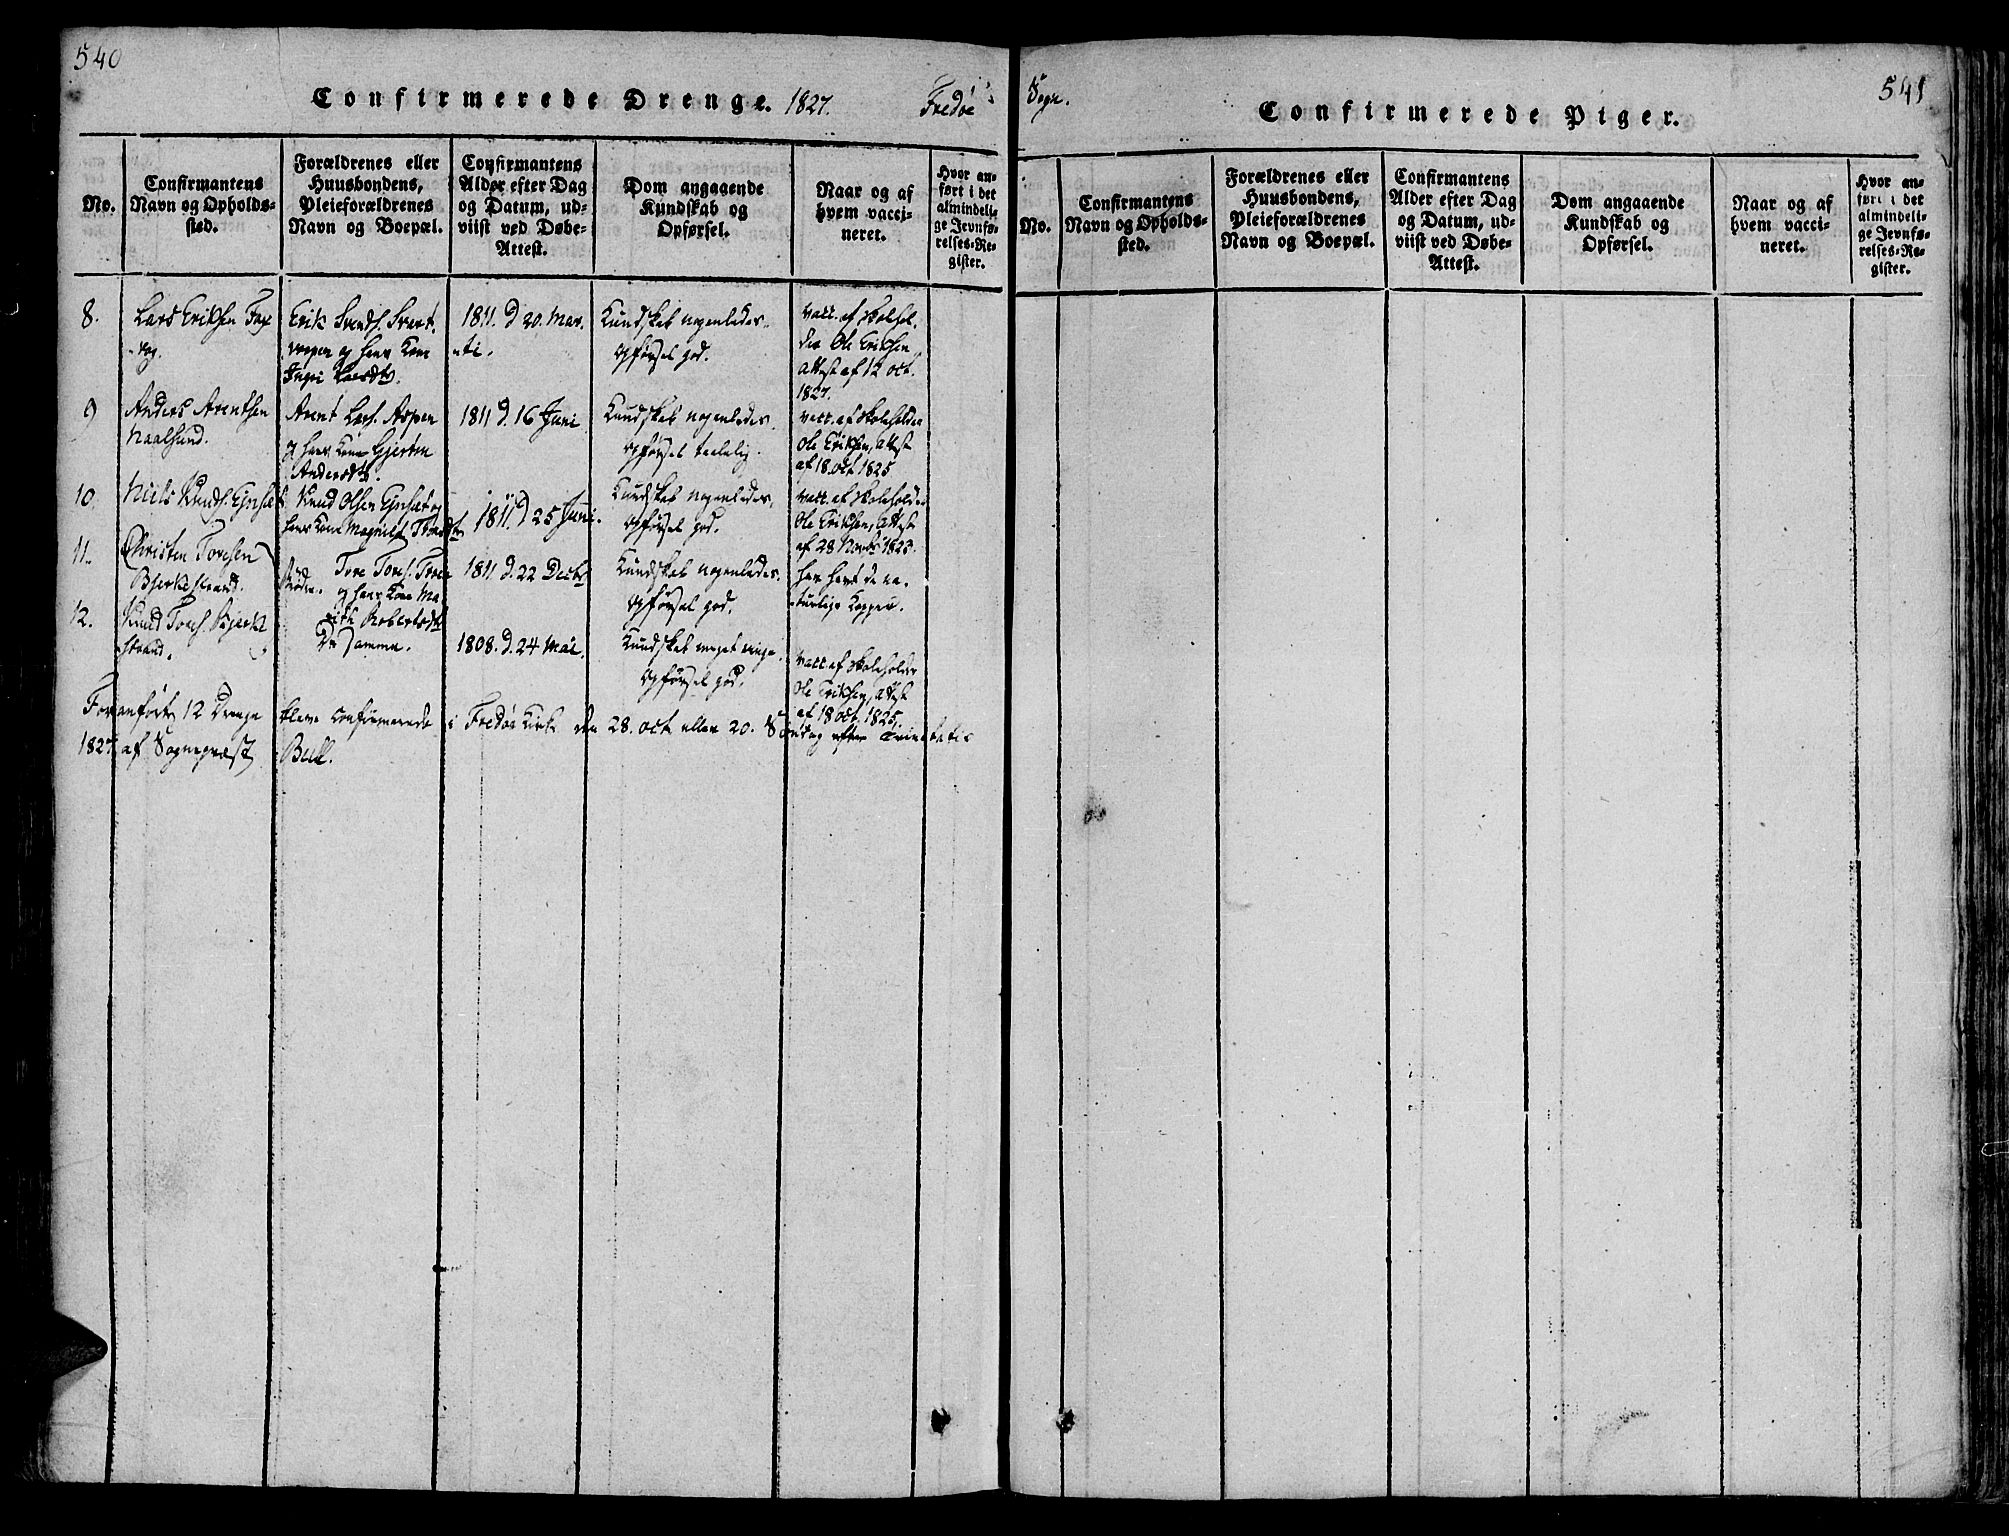 540
Confirmerede Drenge. 1827. Fredøe
No.
Confirmantens
Navn og Opholds-
sted.
Forældrenes eller
Huusbondens,
Pleieforældrenes
Navn og Boepæl.
Confirmantens
Alder efter Dag
og Datum, ud-
viist ved Døbe-
Attest.
Dom angaaende
Kundskab og
Opførsel.
Naar og af
hvem vacci-
neret.
Hvor an-
ført i det
almindeli-
ge Jevnfø-
relses-Re-
gister.
8.
Lars Eriksen
Erik Svends.
og hans Kone
Ingri Larsdtr.
1811. d 20. Mar-
ti.
Kundskab nogenledes.
Opførsel god.
vacc. af Skolehol-
der Ole Eriksen,
attest af 12 oct.
1827.
9
Anders Arentsen
Naalsund.
Arent Lars. Aspen
og hans Kone Gjertru
Andersdtr.
1811 d. 16 Juni
Kundskab nogenledes.
Opførsel taalelig.
vacc. af Skoleholder
Ole Eriksen, attest
af 18. oct. 1825
10.
Niels Knuds. Ejnset
Knud Olsen Ejnset og
hans Kone Magnild
1811. d 25 Juni.
Kundskab nogenledes,
Opførsel god.
vacc. af Skoleholder
Ole Eriksen, attest
af 28 Novbr 1823.
11.
Christen Toresen
Bjerkestrand.
Tore Tores.
og hans Kone Ma-
rith Robertsdtr
1811. d. 22 Decbr
Kundskab nogenledes.
Opførsel god.
har havt de na-
turlige Kopper.
12.
Knud Tores. Bjerke
strand.
De samme.
1808. d. 24 Mai.
Kundskab meget ringe.
Opførsel god.
vacc. af Skoleholder
Ole Eriksen, attest
af 18 oct. 1825.
Foranførte 12 Drenge bleve confirmerede i Fredøe Kirke den 28. oct. eller 20. Søndag efter Trinitatis
1827 af Sognepræst Bull.
Sogn.
541
Confirmerede Piger.
No.
Confirmantens
Navn og Opholds-
sted.
Forældrenes eller
Huusbondens,
Pleieforældrenes
Navn og Boepæl.
Confirmantens
Alder efter Dag
og Datum, ud-
viist ved Døbe-
Attest.
Dom angaaende
Kundskab og
Opførsel.
Naar og af
hvem vacci-
neret.
Hvor an-
ført i det
almindeli-
ge Jevnfø-
relses-Re-
gister.